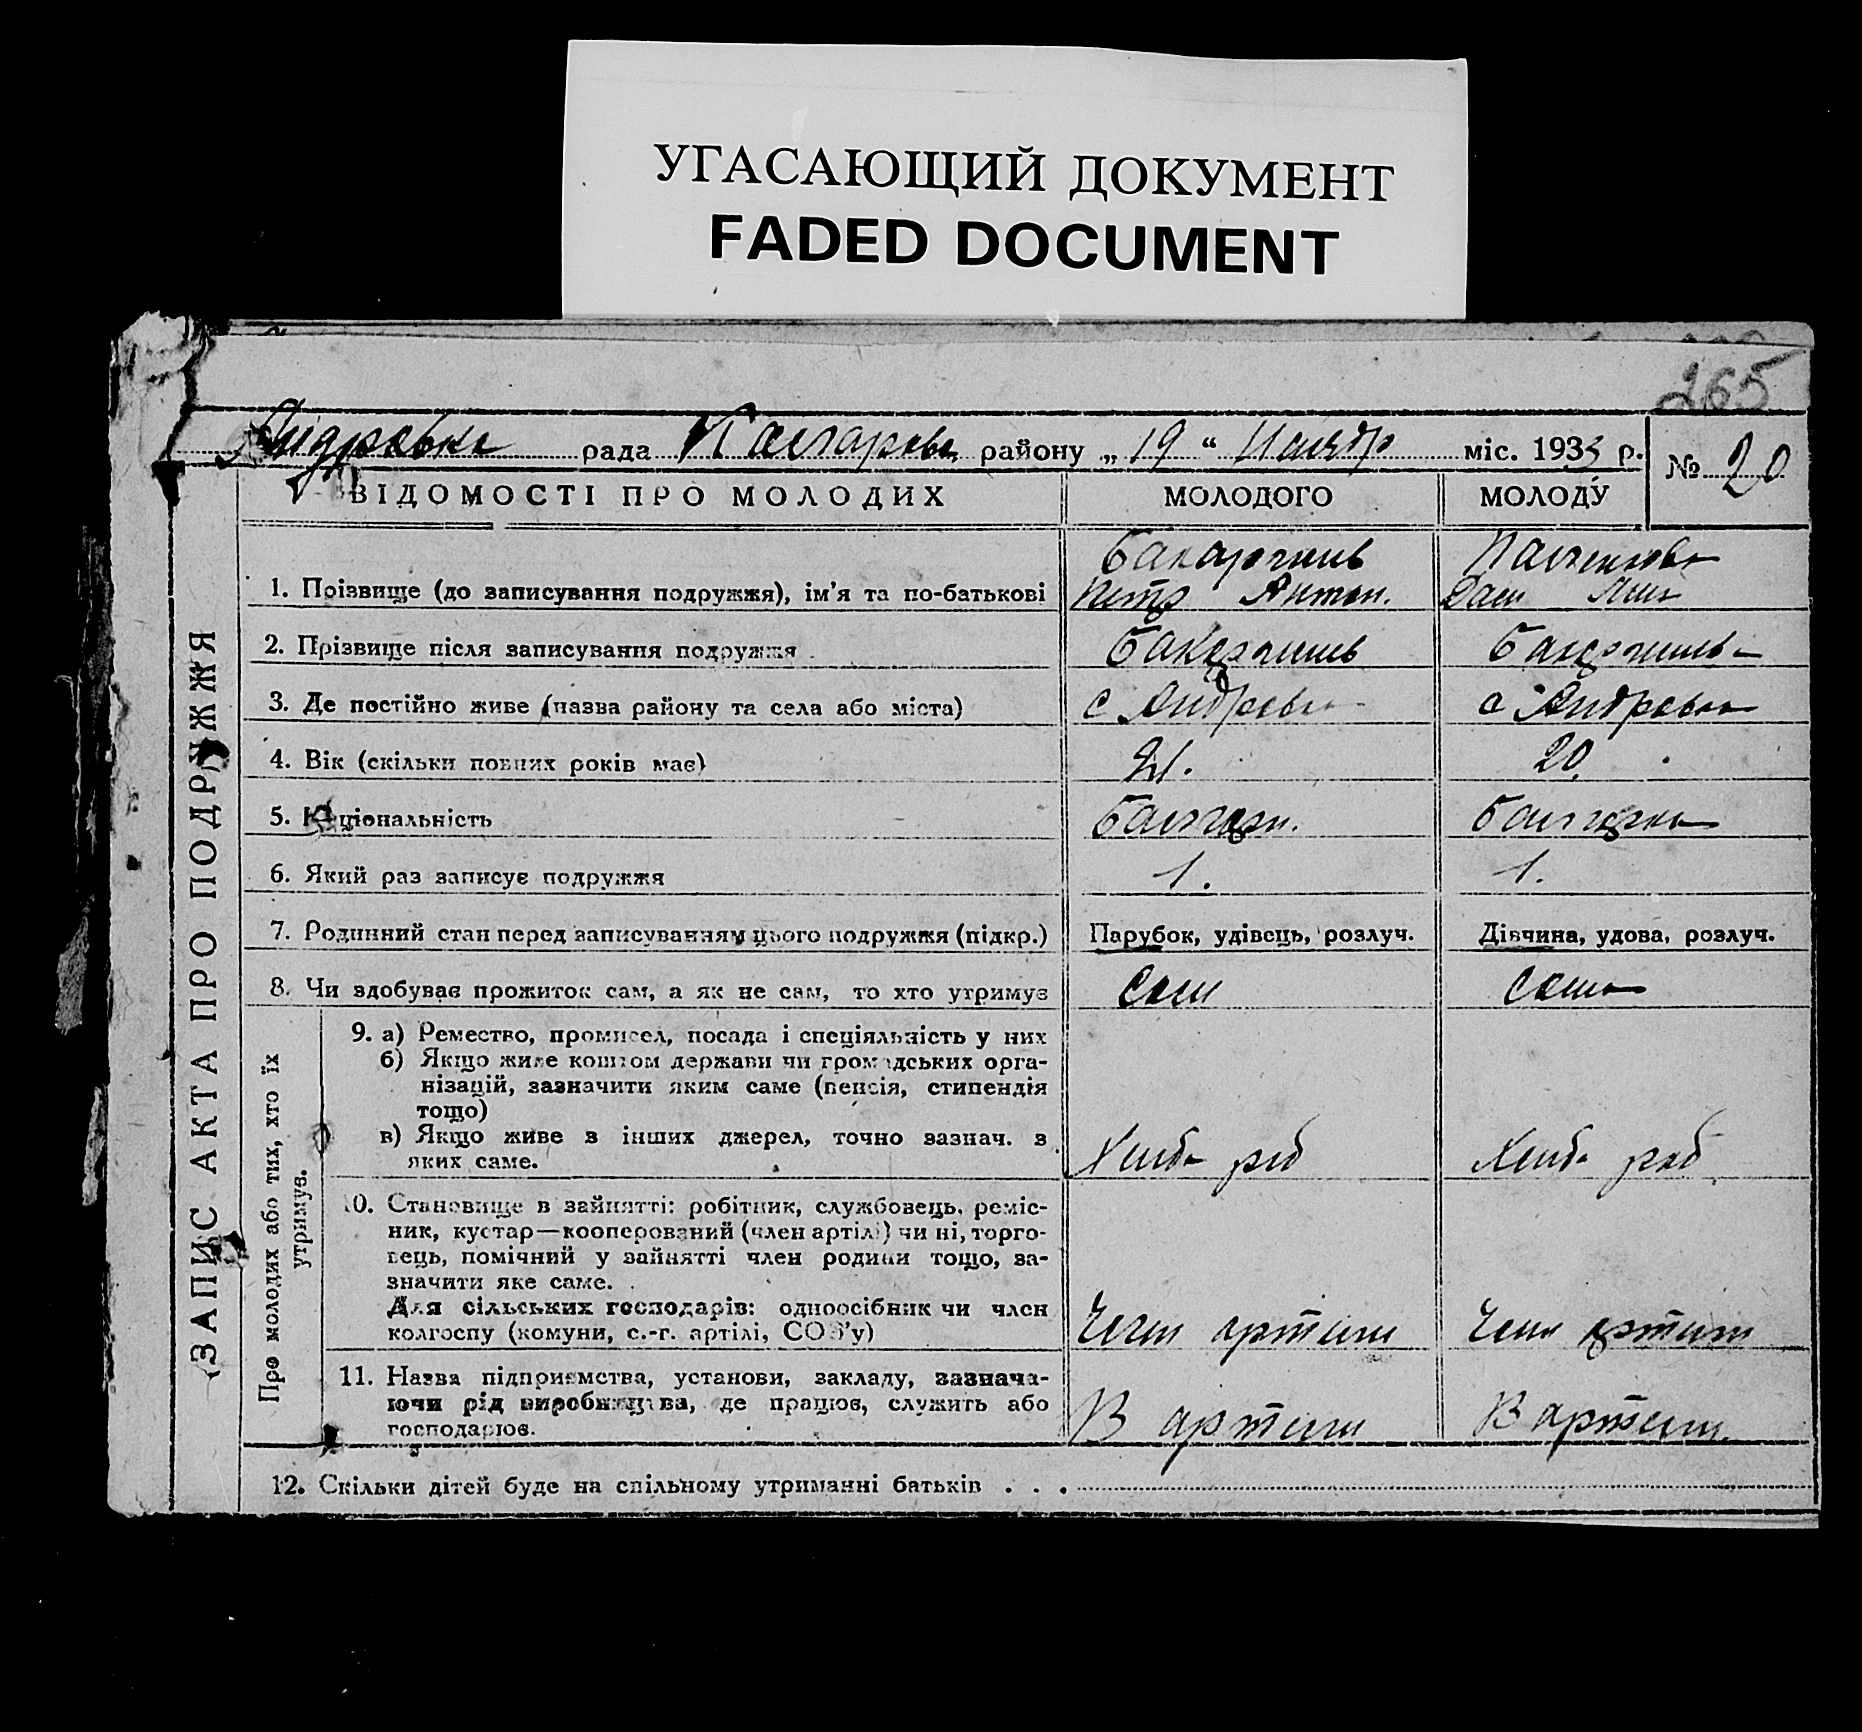 УГАСАЮЩИЙ ДОКУМЕНТ
FADED DOCUMENT
265
рада району „19“ міс. 1933 р. № 20
ВІДОМОСТІ ПРО МОЛОДИХ МОЛОДОГО МОЛОДУ
ЗАПИС АКТА ПРО ПОДРУЖЖЯ
1. Прізвище (до записування подружжя), ім'я та по-батькові
Петр Антон.
2. Прізвище після записування подружжя
3. Де постійно живе (назва району та села або міста) с Андровка с Андровка
4. Вік (скільки повних років має) 21. 20.
5. Національність Болгари. Болгарка
6. Який раз записує подружжя 1. 1.
7. Родинний стан перед записуванням цього подружжя (підкр.) Парубок, удівець, розлуч. Дівчина, удова, розлуч.
8. Чи здобуває прожиток сам, а як не сам, то хто утримує Сам Сама
Про молодих або тих, хто їх
утримує.
9. а) Ремество, промисел, посада і спеціяльність у них
б) Якщо живе коштом держави чи громадських орга-
нізацій, зазначити яким саме (пенсія, стипендія
тощо)
в) Якщо живе з інших джерел, точно зазнач. з
яких саме.
Хліб роб Хліб роб
10. Становище в зайнятті: робітник, службовець, реміс-
ник, кустар—кооперований (член артілі) чи ні, торго-
вець, помічний у зайнятті член родини тощо, за-
значити яке саме.
Для сільських господарів: одноосібник чи член
колгоспу (комуни, с.-г. артілі, СОЗ'у)
Член артили Член артили
11. Назва підприємства, установи, закладу, зазнача-
ючи рід виробництва, де працює, служить або
господарює.
В артили В артили
12. Скільки дітей буде на спільному утриманні батьків . . .